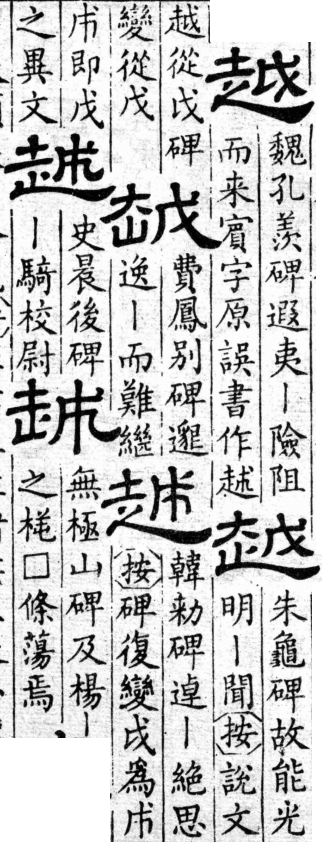 越
魏孔羨碑遐夷丨險阻
而来賓字原誤書作越
越
朱龜碑故能光
明丨聞按說文
越從戉碑
變從戊
越
費鳳別碑邈
逸丨而難繼
越
韓勑碑逴丨絶思
按碑復變戉為朮
朮即戊
之異文
越
史晨後碑
丨騎校尉
越
無極山碑及楊丨
之□條蕩焉